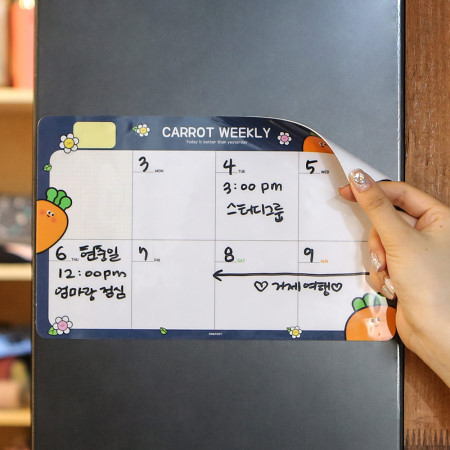 CARROT WEEKLY
Today is better than yesterday
3 MON
4 TUE
3:00 pm
스터디그룹
5 WED
6 THU 현충일
12:00pm
엄마랑 점심
7
8 SAT
9 SUN
♡ 거제여행 ♡